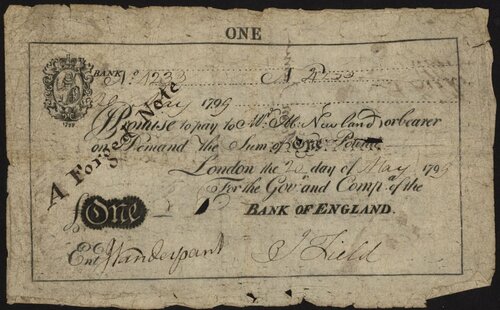 ONE
BANK No 4233 No 4233
20 May 1799
Promise to pay to Mr. Ab. Newland or bearer
on Demand the Sum of One Pound
London the 20 day of May 1799
For the Govr. and Compa. of the
£ One BANK OF ENGLAND.
Entd J Field
A Forged Note